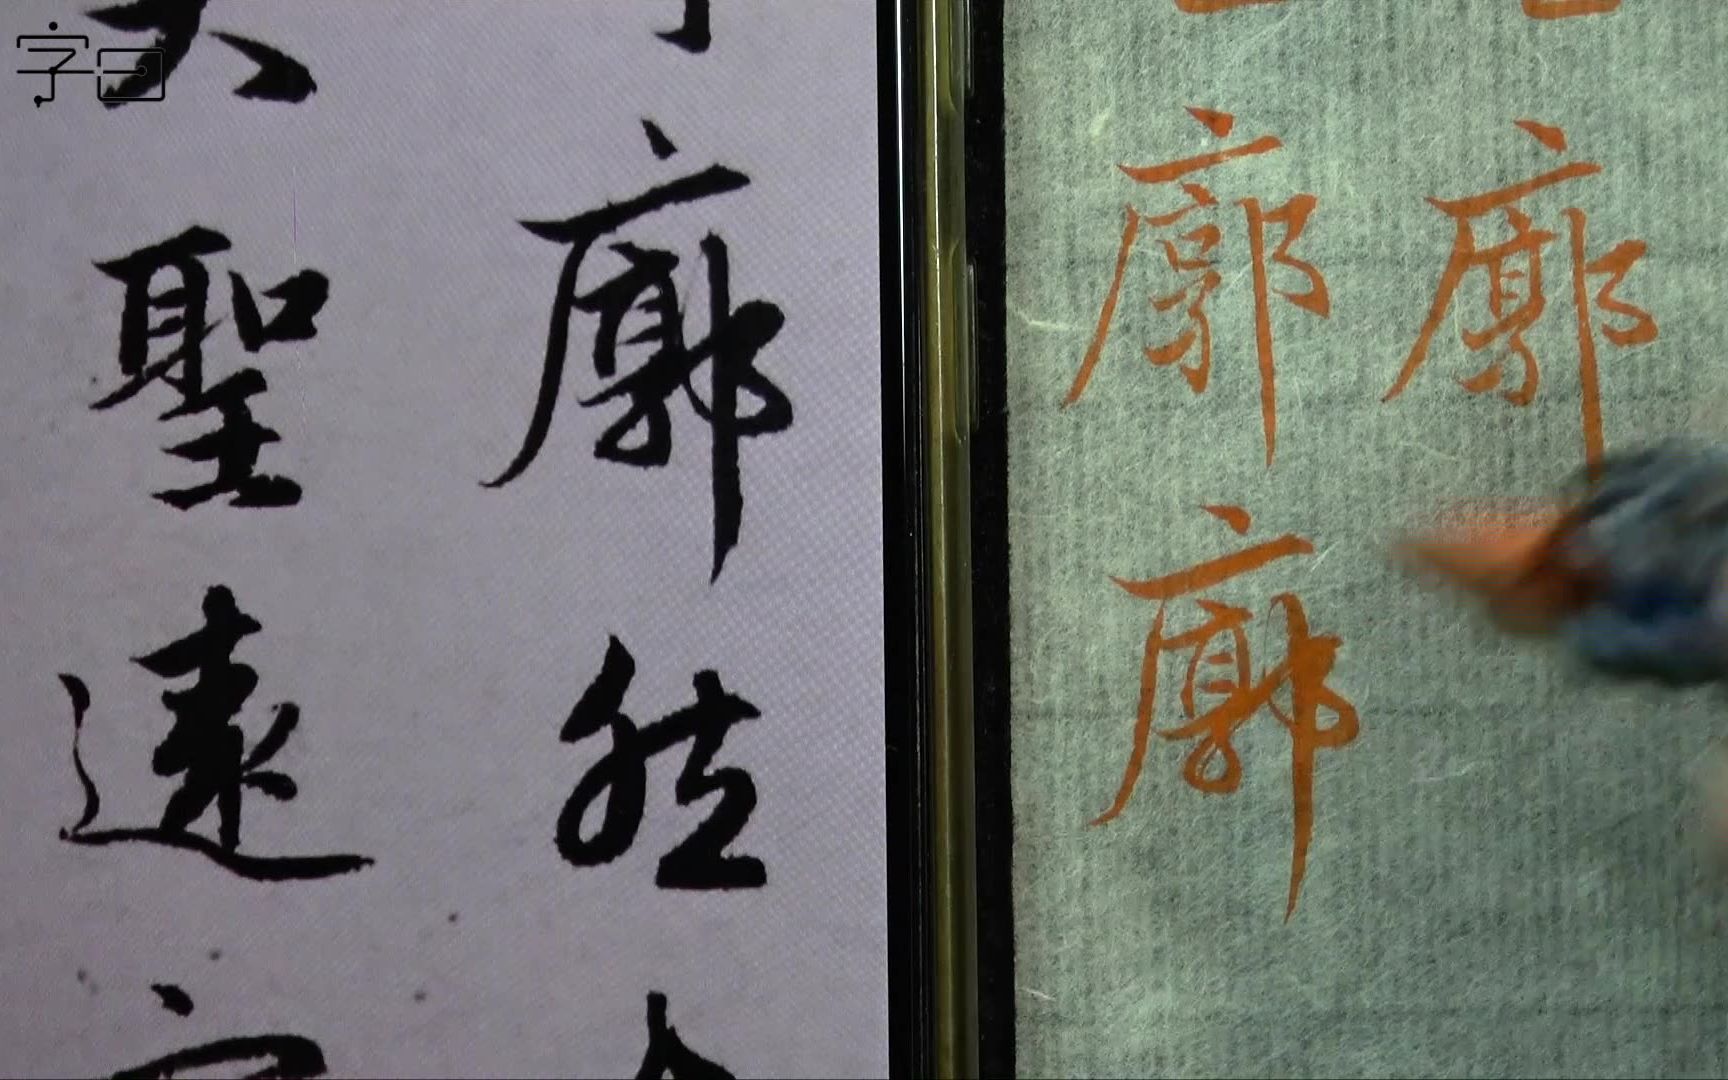 字曰
廓然
聖遠
廓廓
廓